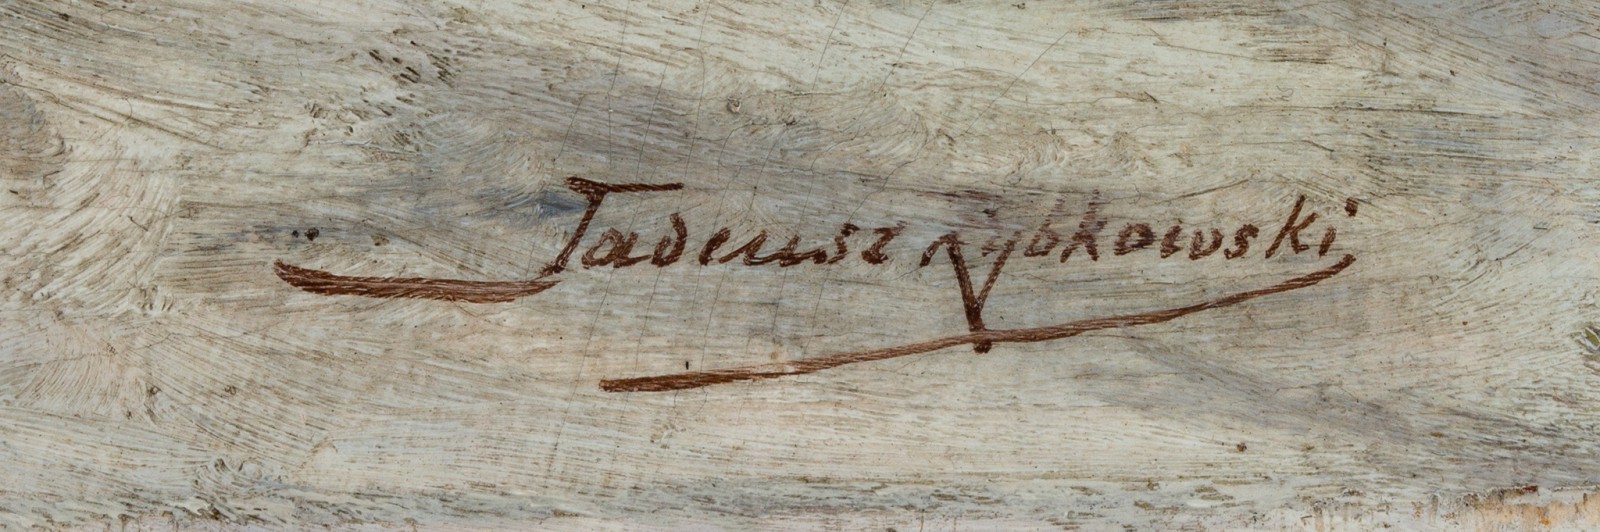 Tadeusz Rybkowski